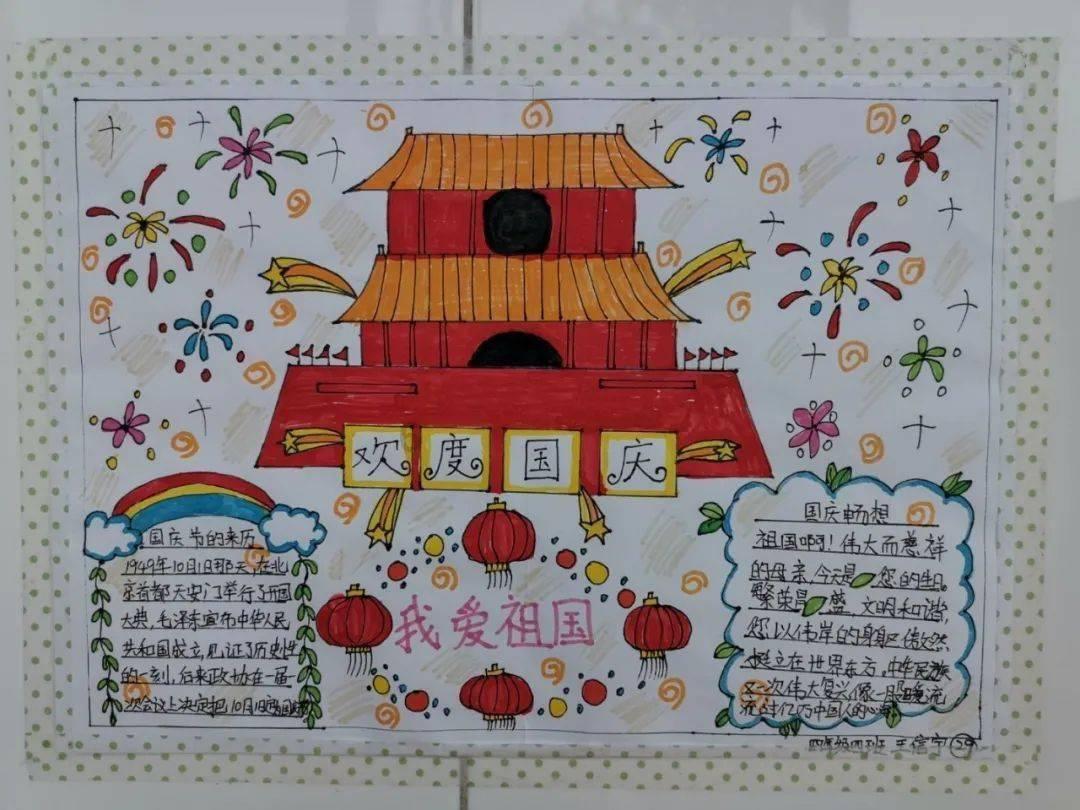 欢度国庆
我爱祖国
国庆节的来历
1949年10月1日那天,在北
京首都天安门举行了开国
大典,毛泽东宣布中华人民
共和国成立,见证了历史性
的一刻,后来政协在一届
次会议上决定把10月1日
国庆畅想
祖国啊!伟大而慈祥
的母亲,今天是 您的生日。
繁荣昌 盛 文明和谐,
您以伟岸的身 傲然
挺立在世界东方,中华民族
又一次伟大复兴像一 暖流
流过亿万中国人的心
四年级四班 王信宁 29